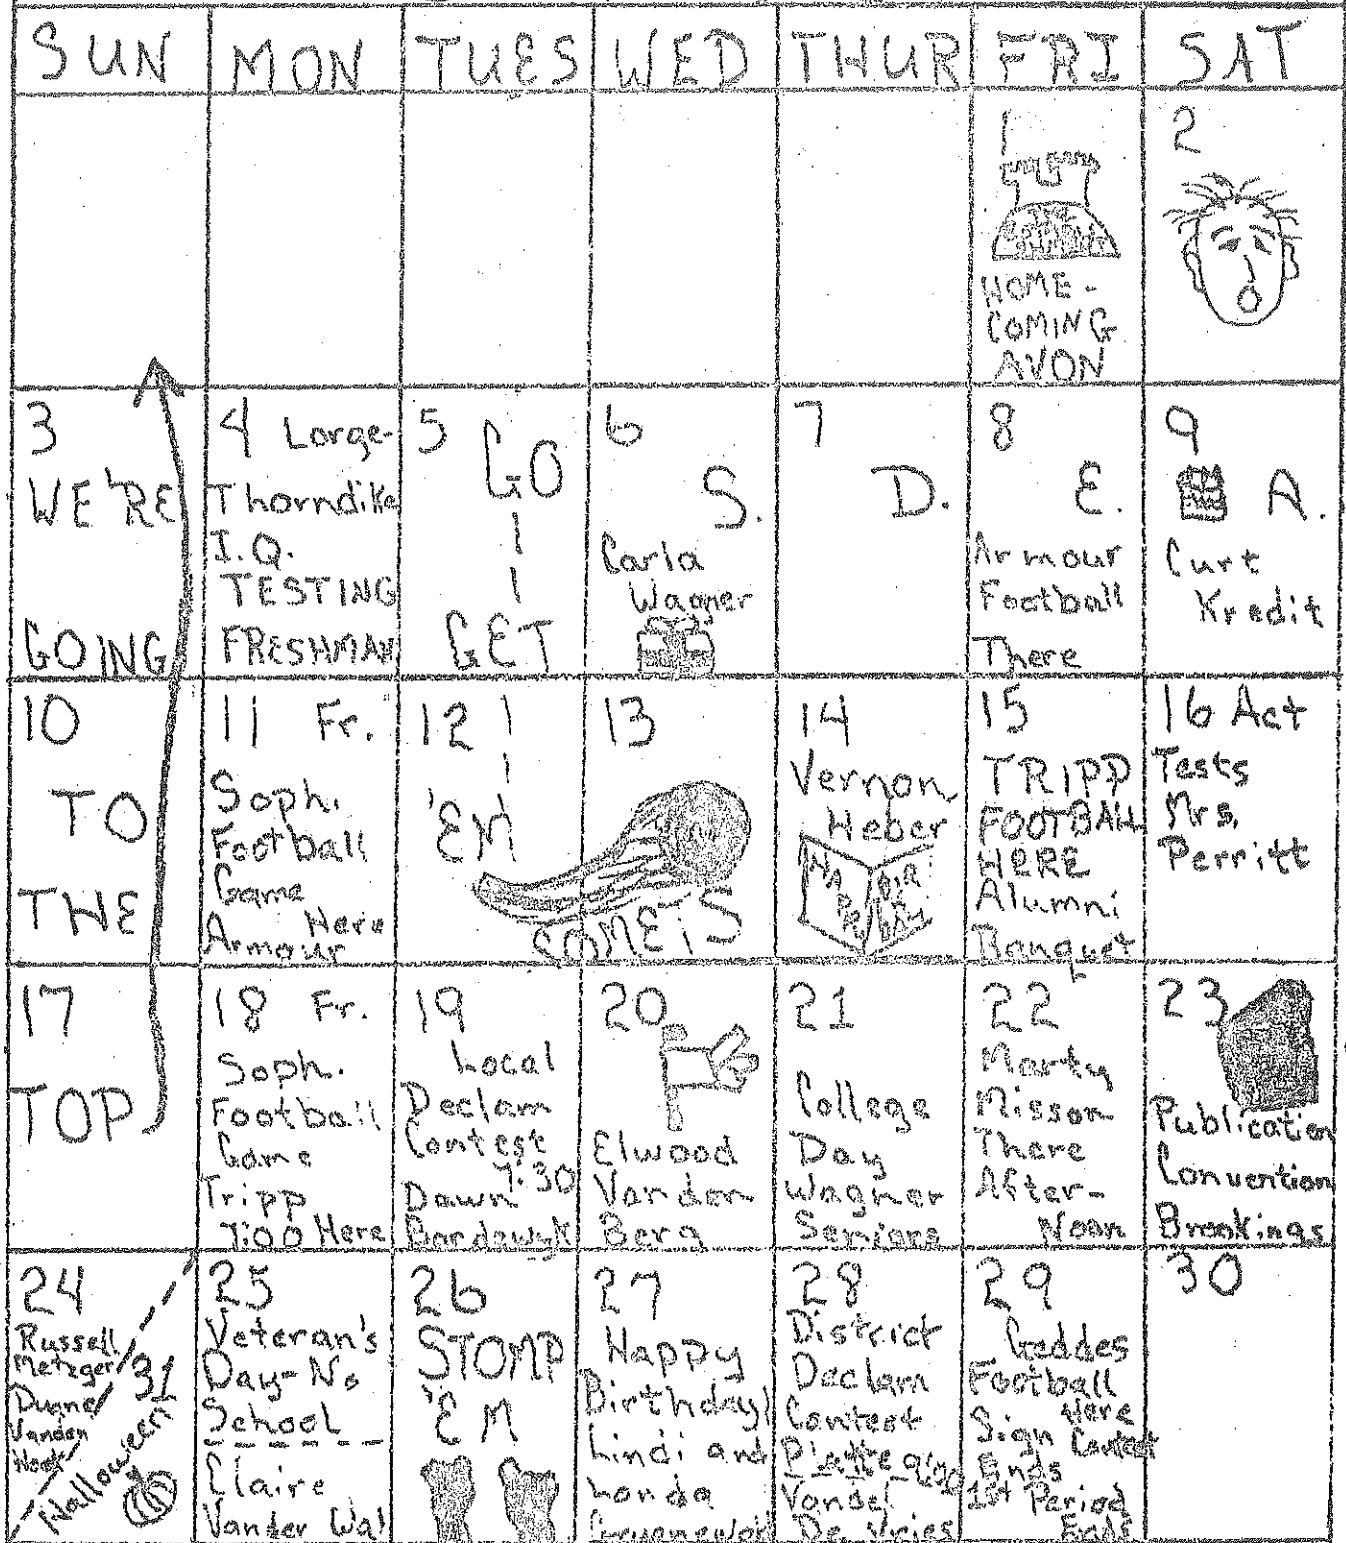 SUN MON TUES WED THUR FRI SAT
1
HOME-
COMING
AVON
2
3
WE'RE
GOING
4 Lorge-
Thorndike
I.Q.
TESTING
FRESHMAN
5
GO
GET
6
S.
Carla
Wagner
7
D.
8
E.
Armour
Football
There
9
A.
Curt
Kredit
10
TO
THE
11 Fr.
Soph.
Football
Game
Here
Armour
12
'EM
13
COMETS
14
Vernon
Heber
15
TRIPP
FOOTBALL
HERE
Alumni
Banquet
16 Act
Tests
Mrs.
Perritt
17
TOP
18 Fr.
Soph.
Football
Game
Tripp
7:00 Here
19
Local
Declam
Contest
7:30
Dawn
Bordewyk
20
Elwood
Vanden
Berg
21
College
Day
Wagner
Seniors
22
Marty
Misson
There
After-
Noon
23
Publication
Convention
Brookings
24
Russell
Metzger
Duane
Vanden
Hoek
31
Halloween
25
Veteran's
Day-No
School
Claire
Vander Wal
26
STOMP
'EM
27
Happy
Birthday!
Lindi and
Londa
28
District
Declam
Contest
Platte
Vandel
De Vries
29
Geddes
Football
Here
Sign Contest
Ends
1st Period
Ends
30